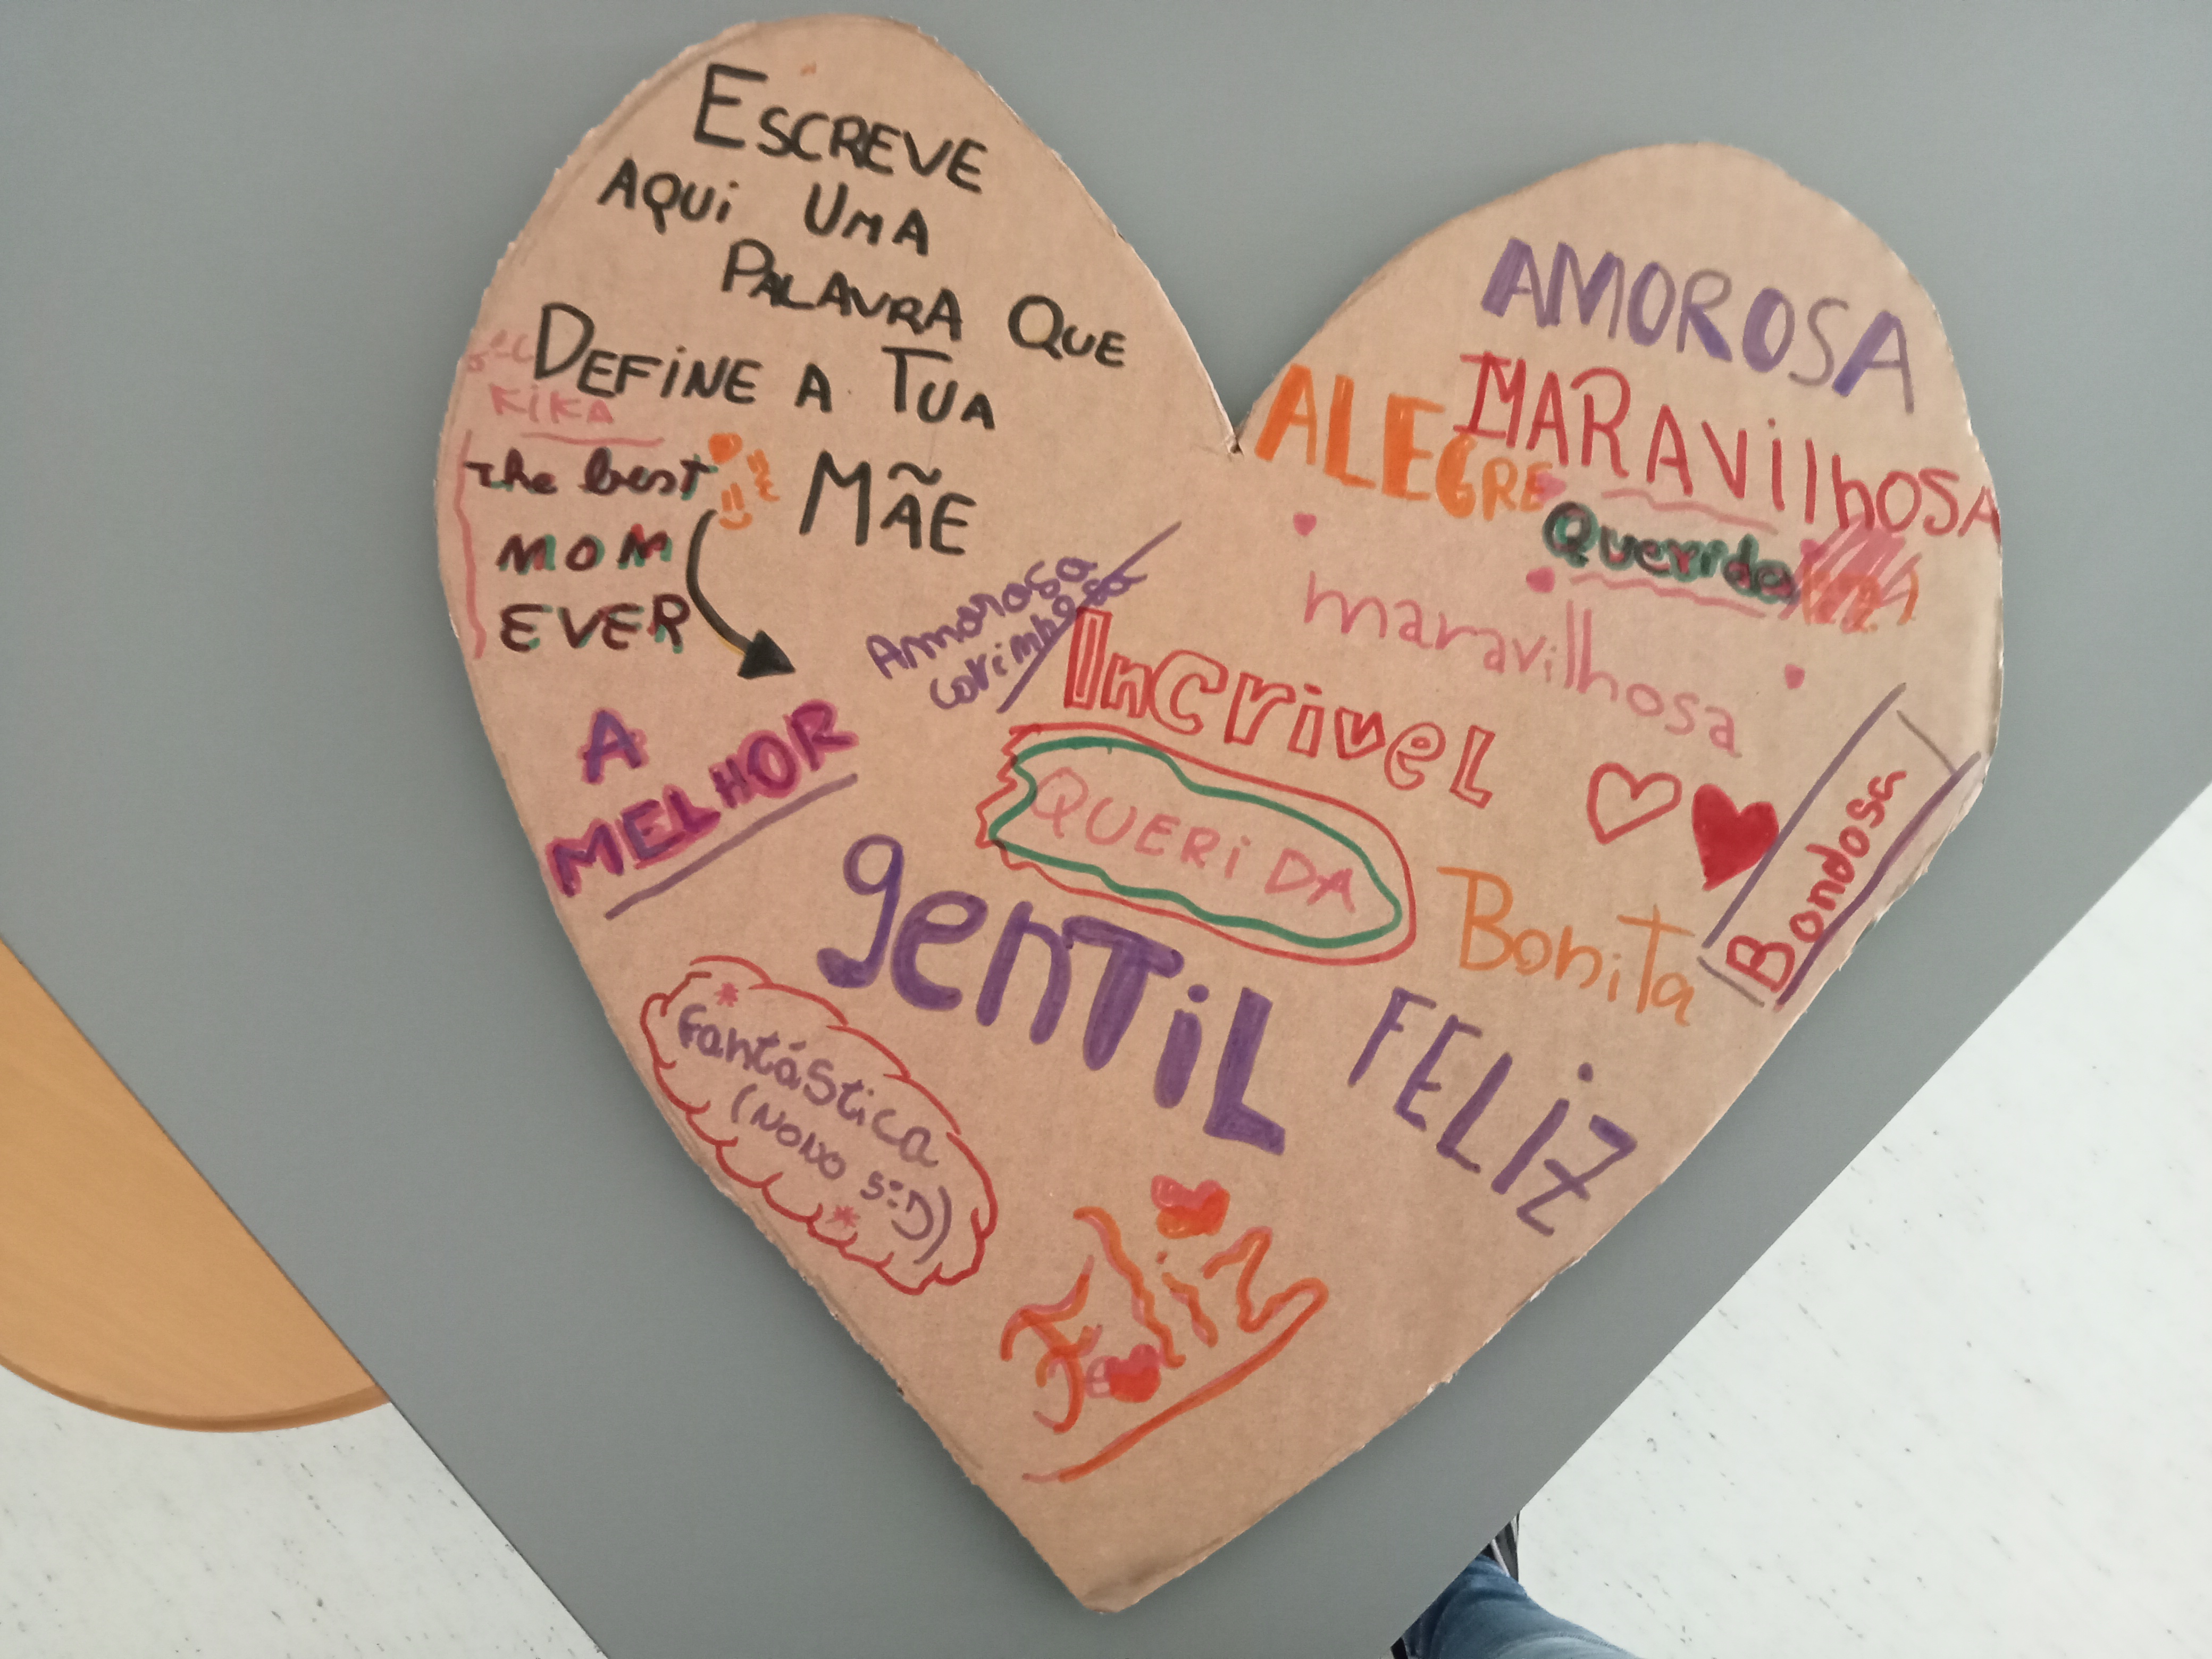 ESCREVE
AQUI UMA
PALAVRA QUE
DEFINE A TUA
MÃE
KIKA
the best
MOM
EVER
A
MELHOR
AMOROSA
MARAVilhOSA
ALEGRE
Querida
maravilhosa
Amorosa
Incrivel
QUERIDA
Bondosa
Bonita
genTiL
FELIZ
Fantástica
(NONO S:D)
Feliz